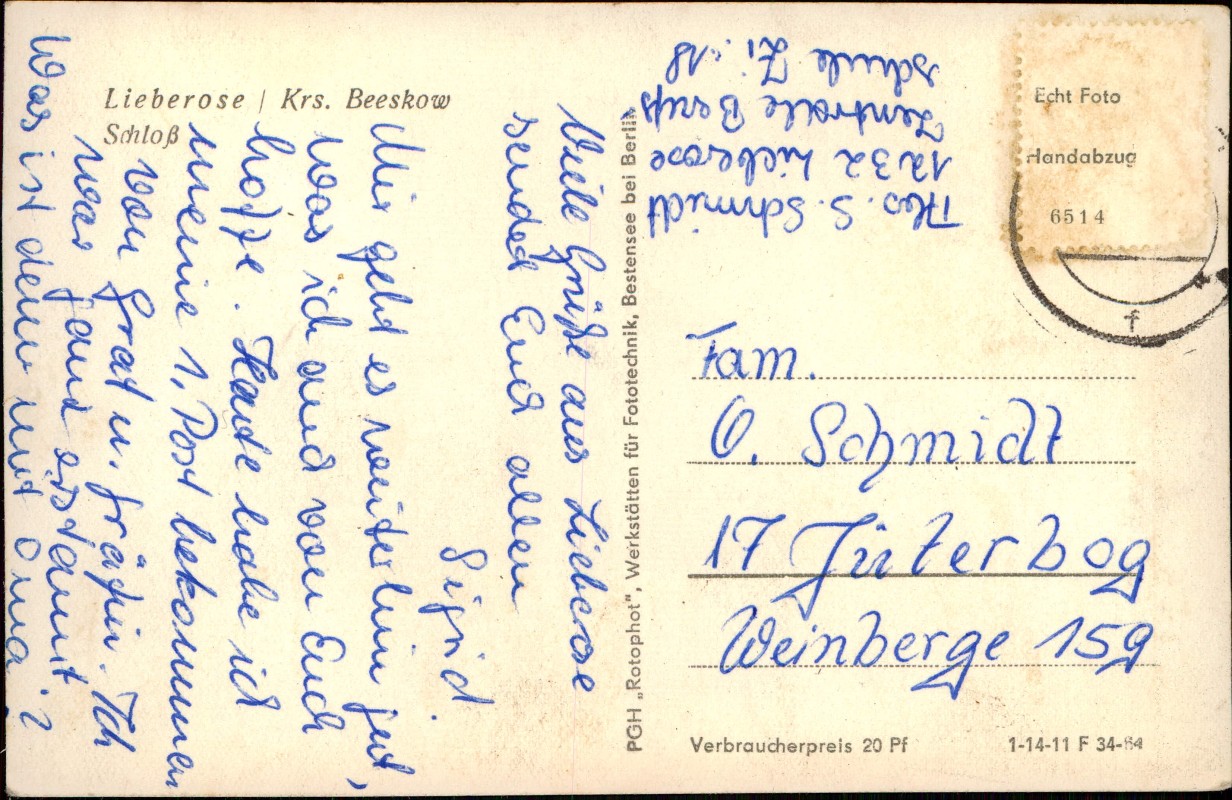 Lieberose / Krs. Beeskow
Schloß
Viele Grüße aus Lieberose
sendet Euch allen
Sigrid.
Mir geht es weiterhin gut,
was ich auch von Euch
hoffe. Heute habe ich
meine 1. Post bekommen
von Grat u. Ich
war ganz erstaunt.
Was ist denn mit Oma?
PGH „Rotophot“, Werkstätten für Fototechnik, Bestensee bei Berlin
Abs. S. Schmidt
1232 Lieberose
Zentralle Berufs
schule Zi. 18
Echt Foto
Handabzug
6514
f
Fam.
O. Schmidt
17 Jüterbog
Weinberge 159
Verbraucherpreis 20 Pf
1-14-11 F 34-64